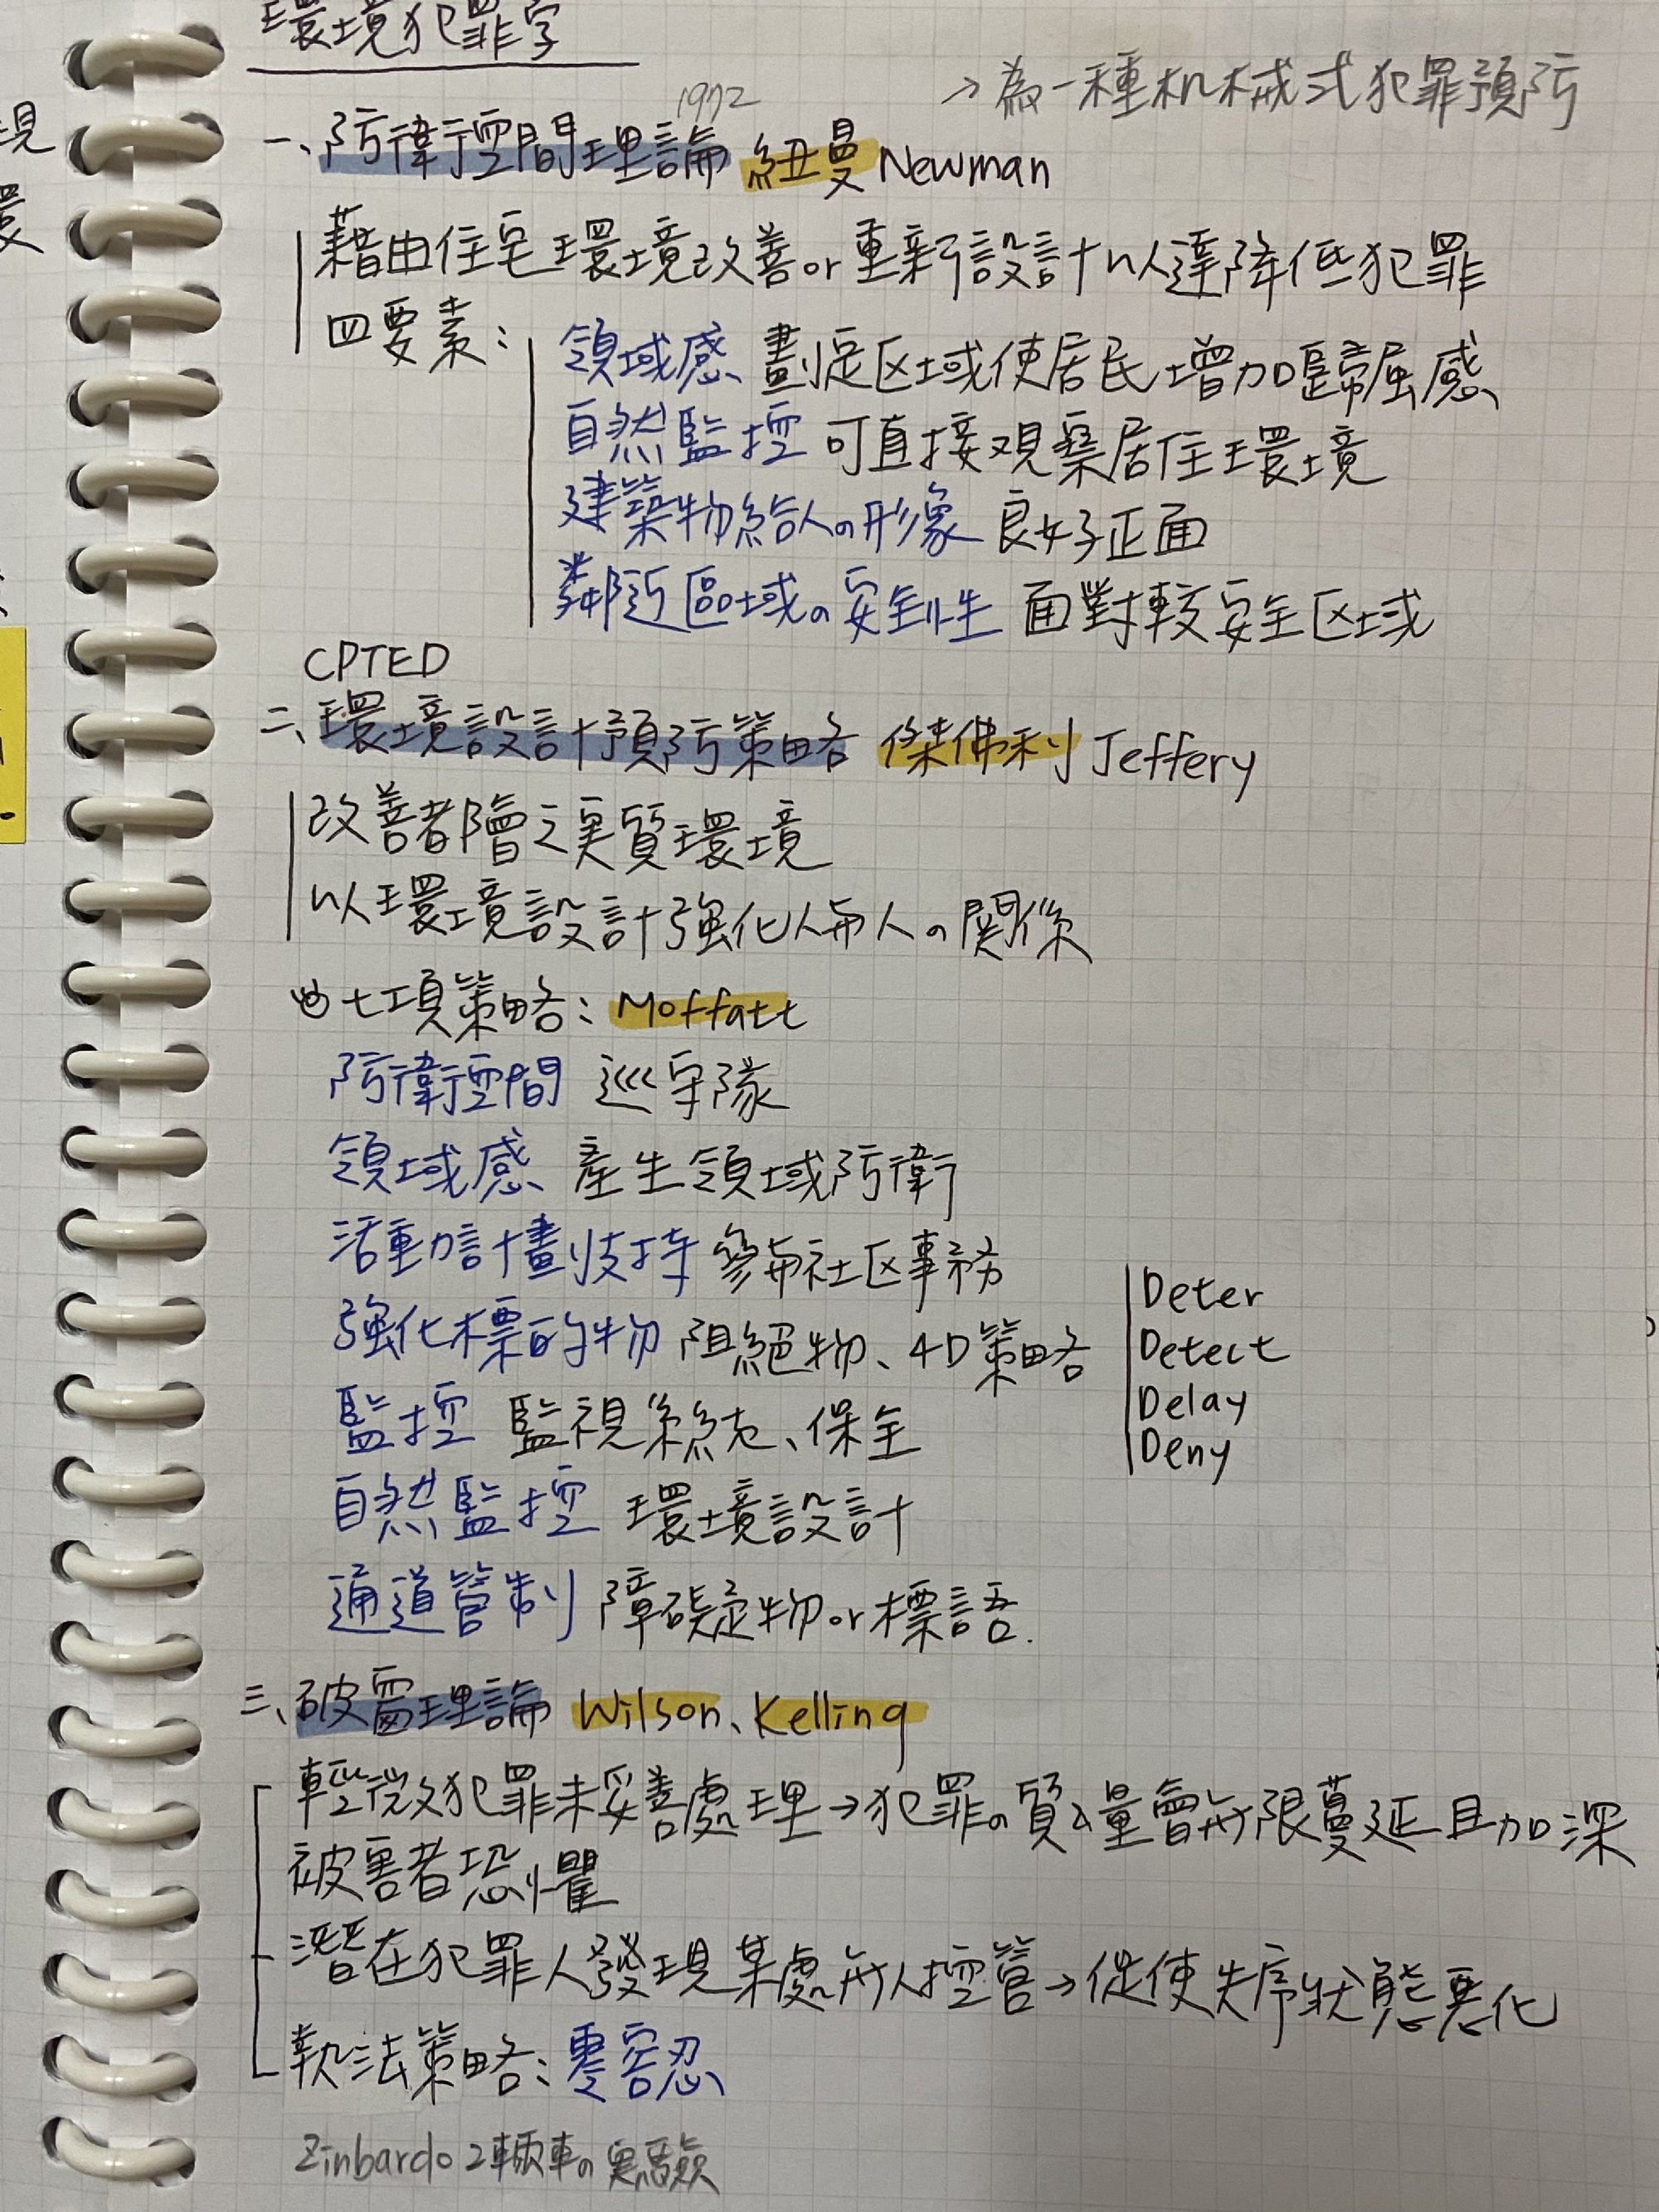 環境犯罪学
→為一種机械式犯罪預防
1972
一、防衛空間理論 紐曼 Newman
藉由住宅環境改善or重新設計以達降低犯罪
四要素：
領域感 劃定区域使居民增加歸屬感
自然監控 可直接观察居住環境
建築物給人の形象 良好正面
鄰近區域の安全性 面對較安全区域
CPTED
二、環境設計預防策略 傑佛利 Jeffery
改善都會之実質環境
以環境設計強化人与人の関係
七項策略：Moffatt
防衛空間 巡守隊
領域感 產生領域防衛
活動計劃支持 參与社区事务
強化標的物 阻絕物、4D策略
Deter
Detect
Delay
Deny
監控 監視系統、保全
自然監控 環境設計
通道管制 障礙物or標語.
三、破窗理論 Wilson、Kelling
輕微犯罪未妥善處理→犯罪の質&量會無限蔓延且加深
被害者恐懼
潛在犯罪人發現某處無人控管→促使失序狀態惡化
執法策略：零容忍
Zinbardo 2輛車の実驗